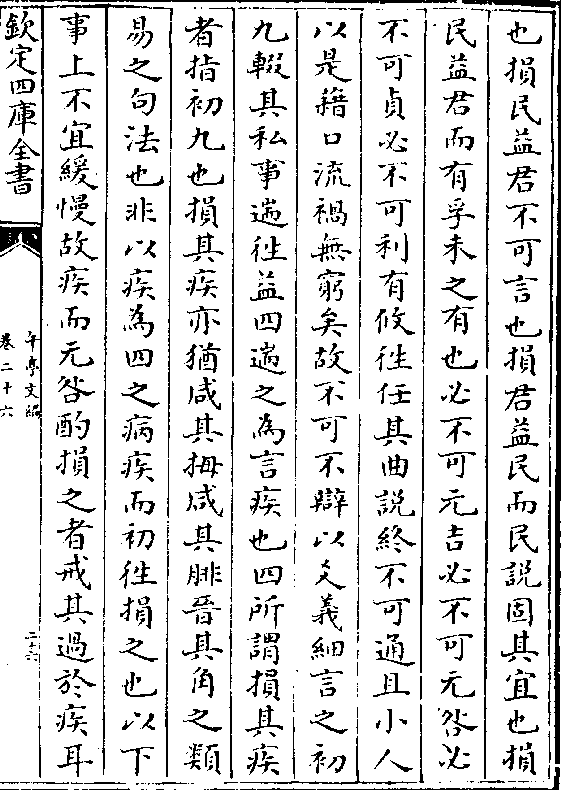 也損民益君不可言也損君益民而民說固其宜也損
民益君而有孚未之有也必不可元吉必不可无咎必
不可貞必不可利有攸徃任其曲說終不可通且小人
以是藉口流禍無窮矣故不可不辯以文義細言之初
九輟其私事遄徃益四遄之為言疾也四所謂損其疾
者指初九也損其疾亦猶咸其拇咸其腓晉其角之類
易之句法也非以疾為四之病疾而初徃損之也以下
事上不宜緩慢故疾而无咎酌損之者戒其過於疾耳
欽定四庫全書
午亭文編
卷二十六